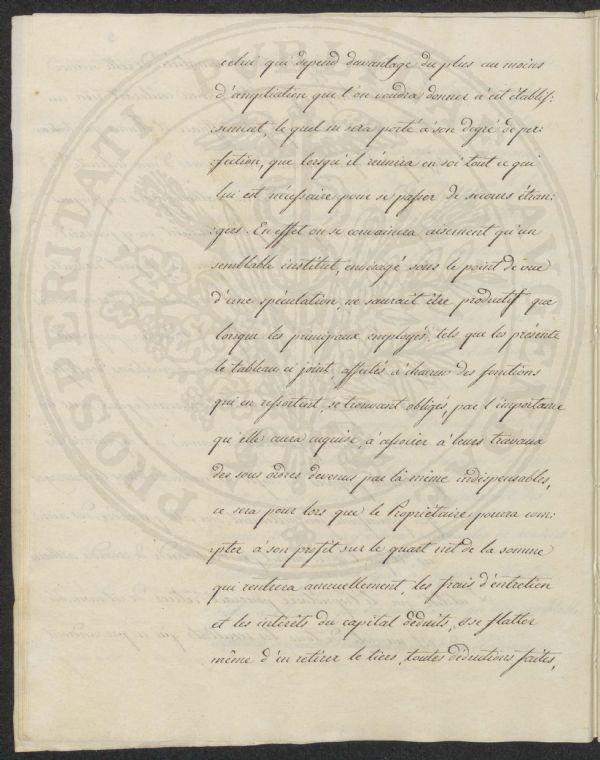 celui qui depend davantage du plus ou moins
d'ampliation que l'on voudra donner à cet établis=
=sement, le quel ne sera porté à son degré de per=
=fection, que lorsqu'il réunira en soi tout ce qui
lui est nécessaire pour se passer de secours étran=
=gers. En effet on se convaincra aisement qu'un
semblable institut, envisagé sous le point de vue
d'une spéculation, ne saurait être productif que
lorsque les principaux employés, tels que les présente
le tableau ci joint, affectés à chacun des fonctions
qui en ressortent, se trouvant obligés, par l'importance
qu'elle aura acquise, à associer à leurs travaux
des sous ordres devenus par là même indispensables,
ce sera pour lors que le Propriétaire pourra com=
=pter à son profit sur le quart net de la somme
qui rentrera annuellement, les frais d'entretien
et les intérêts du capital déduits, et se flatter
même d'en retirer le tiers, toutes déductions faites,
PROSPERITATI PUBLICAE